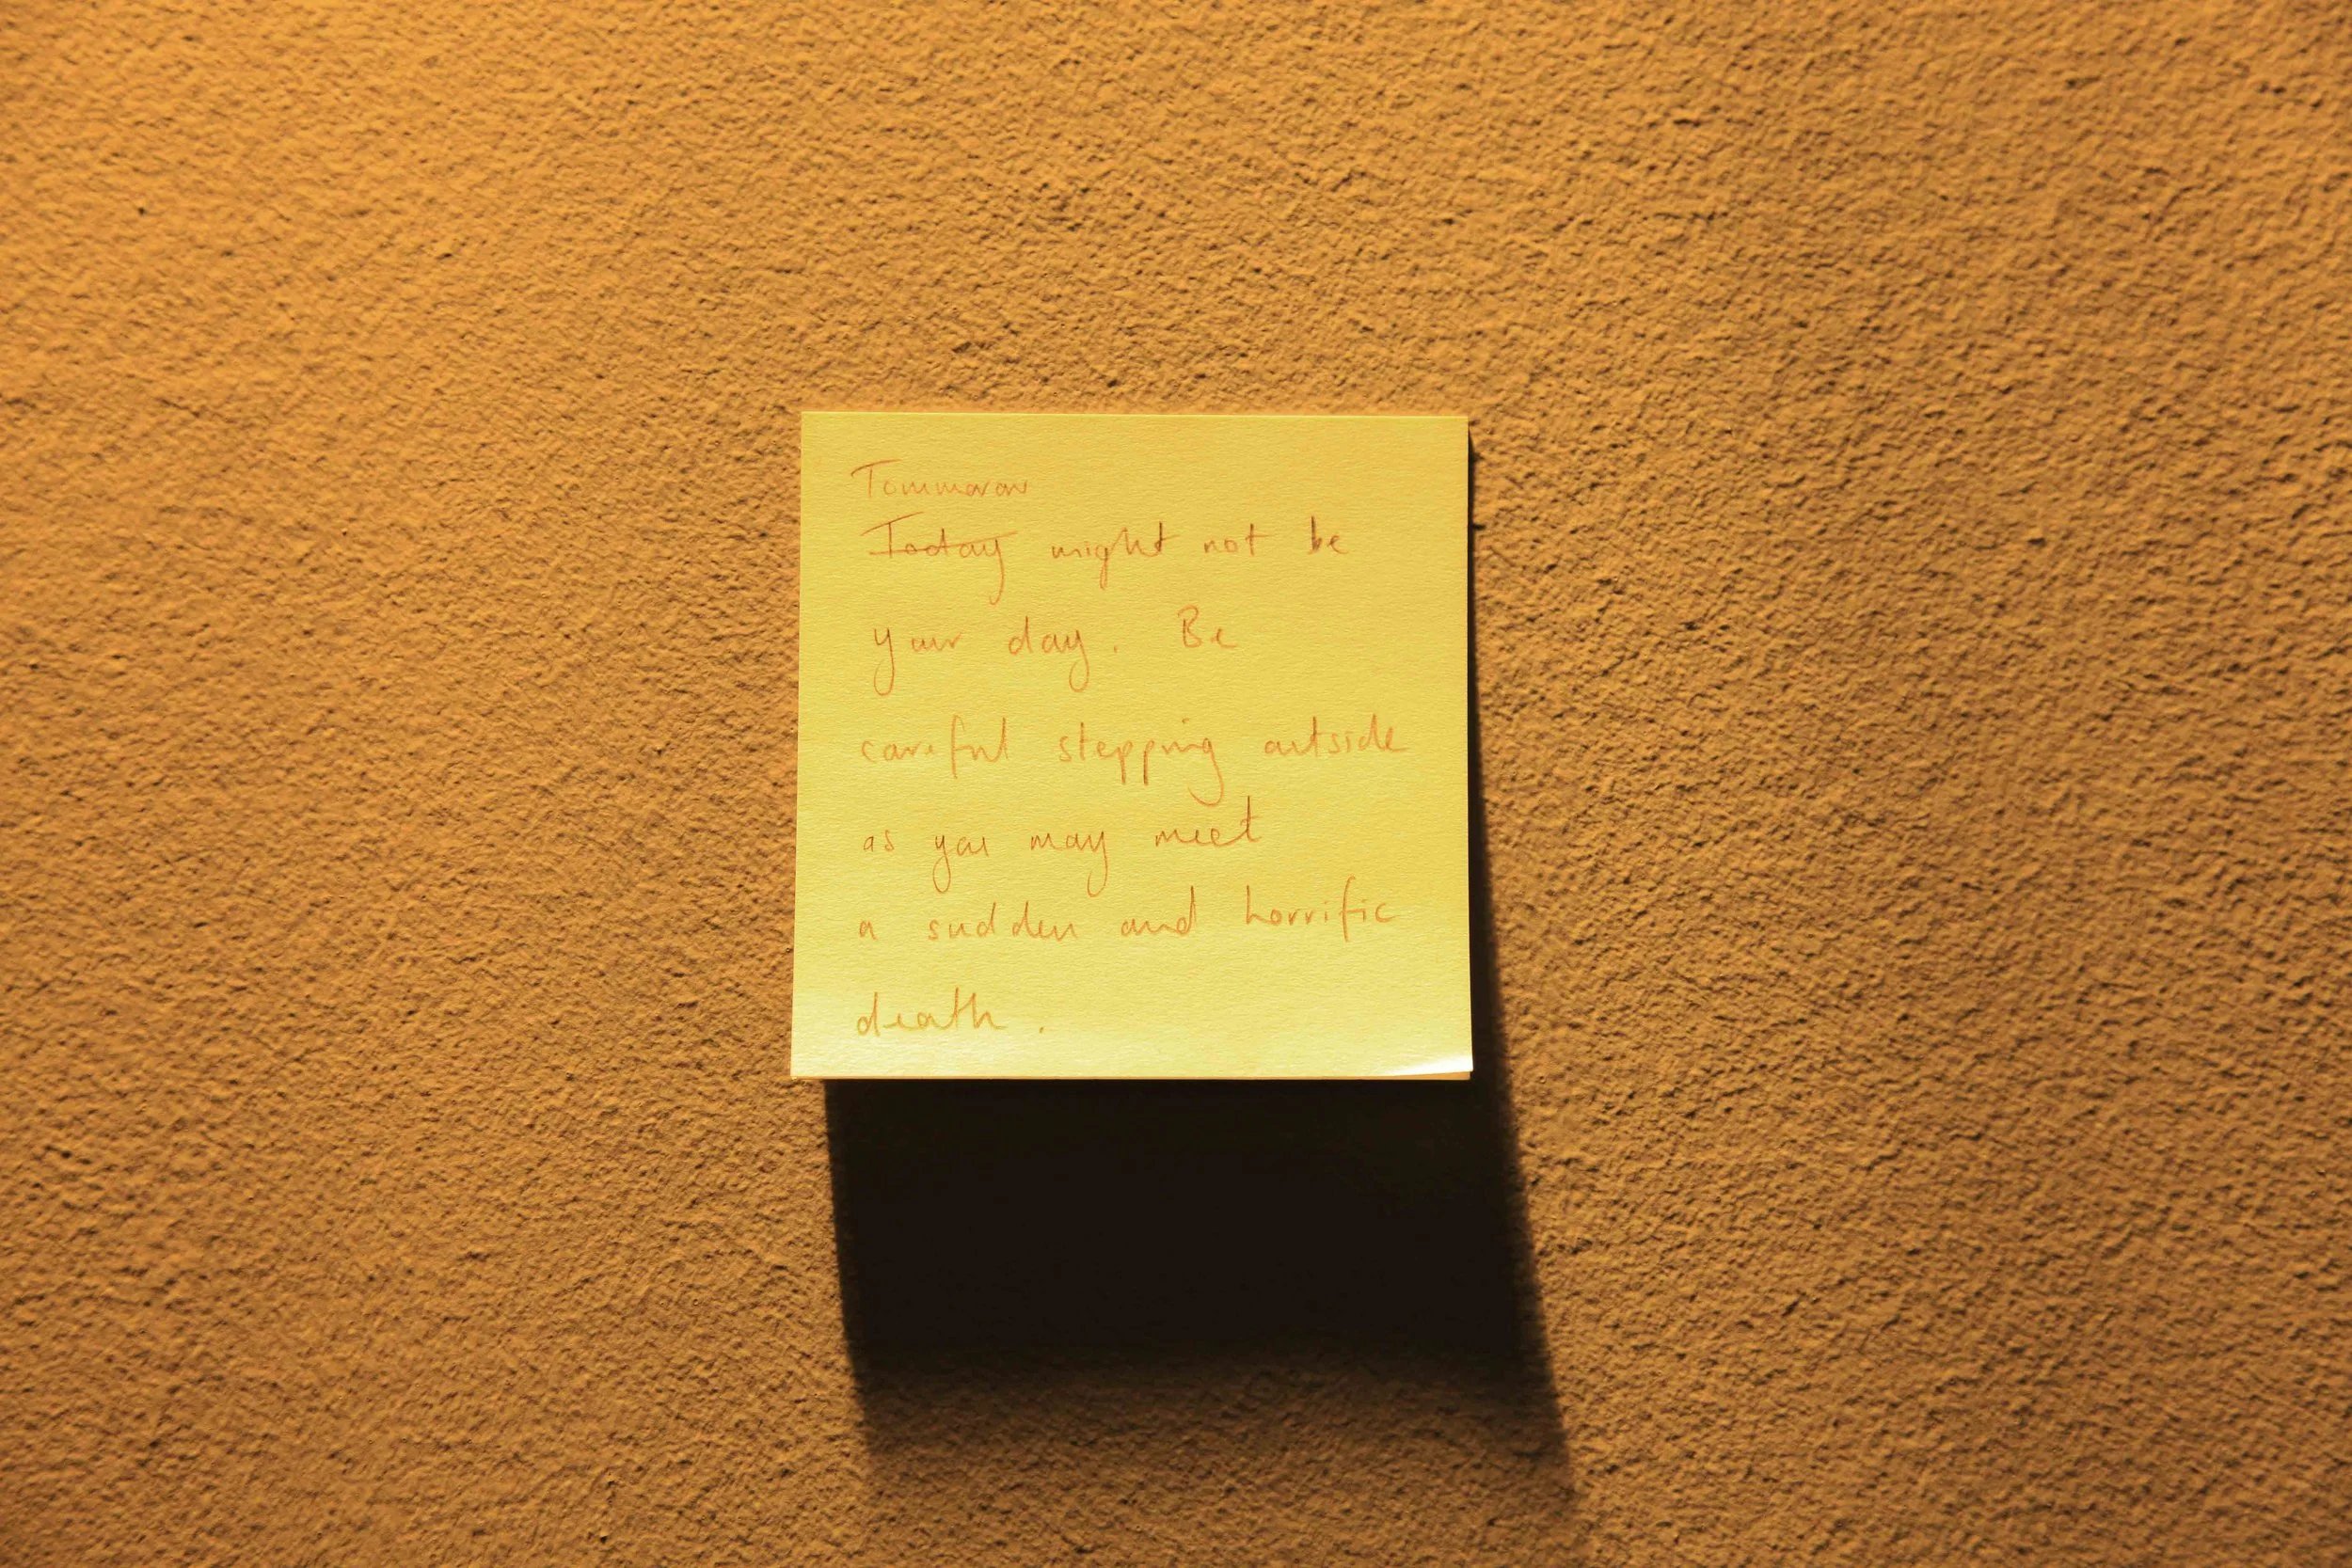 Tommorow
Today might not be
your day. Be
careful stepping outside
as you may meet
a sudden and horrific
death.